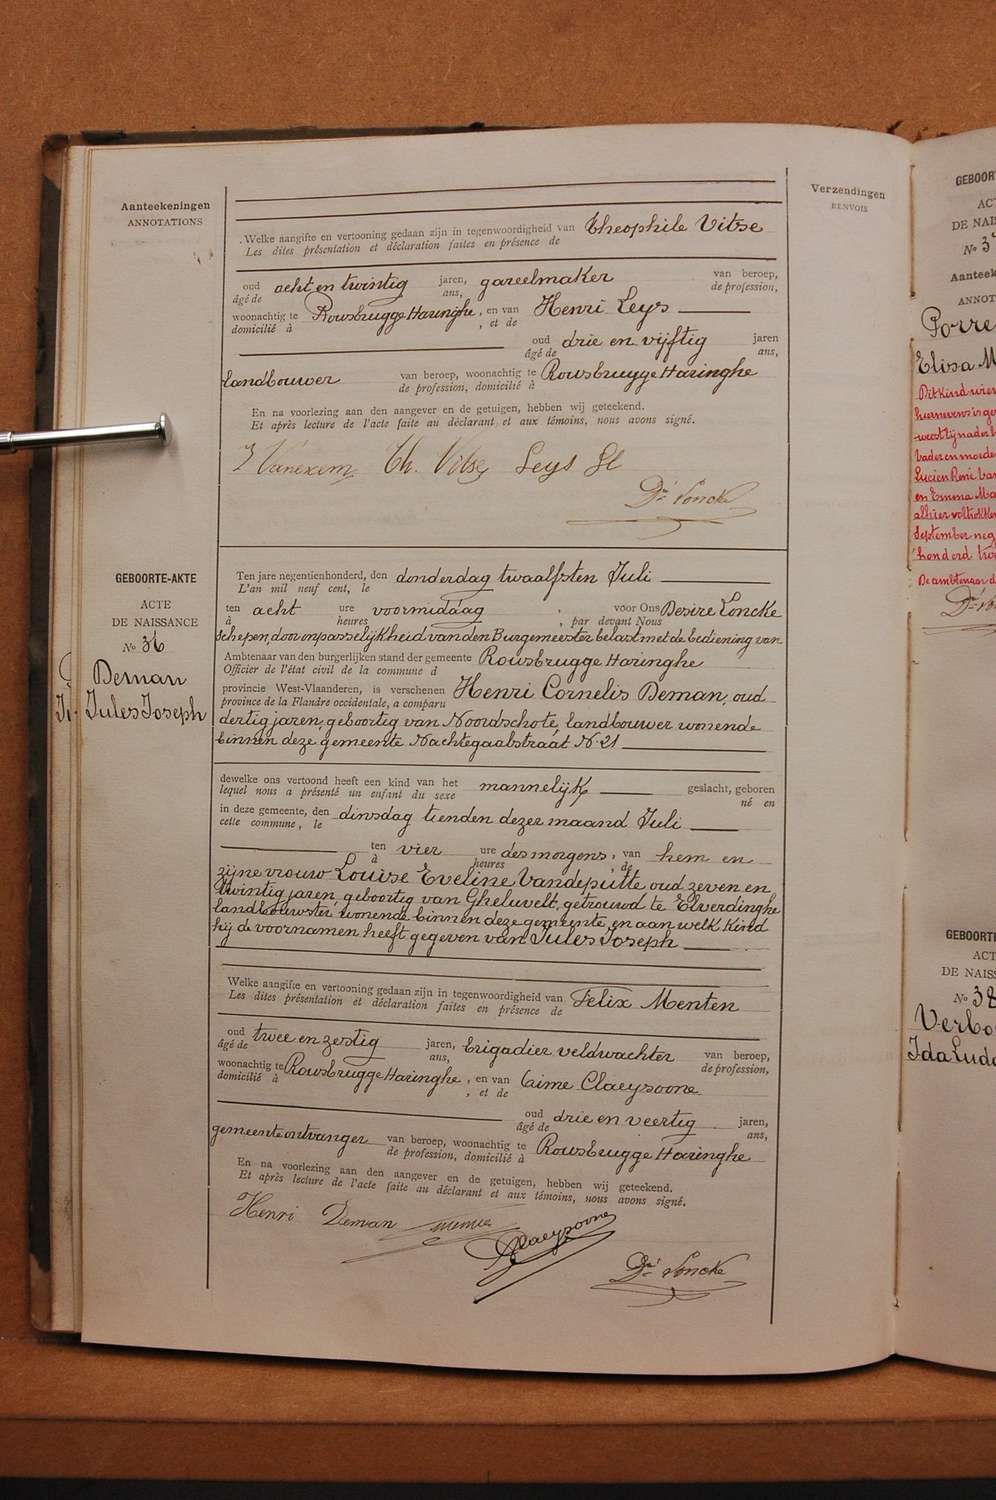 Aanteekeningen
ANNOTATIONS
Verzendingen
RENVOIS
Welke aangifte en vertooning gedaan zijn in tegenwoordigheid van Theophile Vitse
Les dites présentation et déclaration faites en présence de
oud acht en twintig jaren, gareelmaker van beroep,
âgé de ans, de profession,
woonachtig te Rousbrugge Haringhe, en van Henri Leys
domicilié à , et de
oud drie en vijftig jaren
âgé de ans,
landbouwer van beroep, woonachtig te Rousbrugge Haringhe
de profession, domicilié à
En na voorlezing aan den aangever en de getuigen, hebben wij geteekend.
Et après lecture de l'acte faite au déclarant et aux témoins, nous avons signé.
Vanexem Th. Vitse Leys
Dré Loncke
GEBOORTE-AKTE
ACTE
DE NAISSANCE
No 36
Deman
Jules Joseph
Ten jare negentienhonderd, den donderdag twaalfsten Juli
L'an mil neuf cent, le
ten acht ure voormidaag , voor Ons Desiré Loncke
à heures , par devant Nous
schepen, door onpasselijkheid van den Burgemeester belast met de bediening van
Ambtenaar van den burgerlijken stand der gemeente Rousbrugge Haringhe
Officier de l'état civil de la commune d
provincie West-Vlaanderen, is verschenen Henri Cornelis Deman, oud
province de la Flandre occidentale, a comparu
dertig jaren, geboortig van Noordschote, landbouwer wonende
binnen deze gemeente Nachtegaalstraat N. 21
dewelke ons vertoond heeft een kind van het mannelijk geslacht, geboren
lequel nous a présenté un enfant du sexe né en
in deze gemeente, den dinsdag tienden dezer maand Juli
cette commune, le
ten vier ure des morgens, van hem en
à heures , de
zijne vrouw Louise Eveline Vandeputte oud zeven en
twintig jaren, geboortig van Gheluvelt, getrouwd te Elverdinghe
landbouwster wonende binnen deze gemeente, en aan welk kind
hij de voornamen heeft gegeven van Jules Joseph
Welke aangifte en vertooning gedaan zijn in tegenwoordigheid van Felix Menten
Les dites présentation et déclaration faites en présence de
oud twee en zestig jaren, brigadier veldwachter van beroep,
âgé de ans, de profession,
woonachtig te Rousbrugge Haringhe, en van Caime Claeysoone
domicilié à , et de
oud drie en veertig jaren,
âgé de ans,
gemeenteontvanger van beroep, woonachtig te Rousbrugge Haringhe
de profession, domicilié à
En na voorlezing aan den aangever en de getuigen, hebben wij geteekend.
Et après lecture de l'acte faite au déclarant et aux témoins, nous avons signé.
Henri Deman
Claeysoone
Dré Loncke
GEBOORT
AC
DE NAIS
No 3
Aanteek
ANNOT
Porre
Elisa M
Dit kind
Vader en moede
Lucien René Van
en Emma Ma
alhier voltrokken
September neg
honderd twe
De ambtenaar d
GEBOORTE
ACT
DE NAISS
No 38
Verbo
Ida Ludo